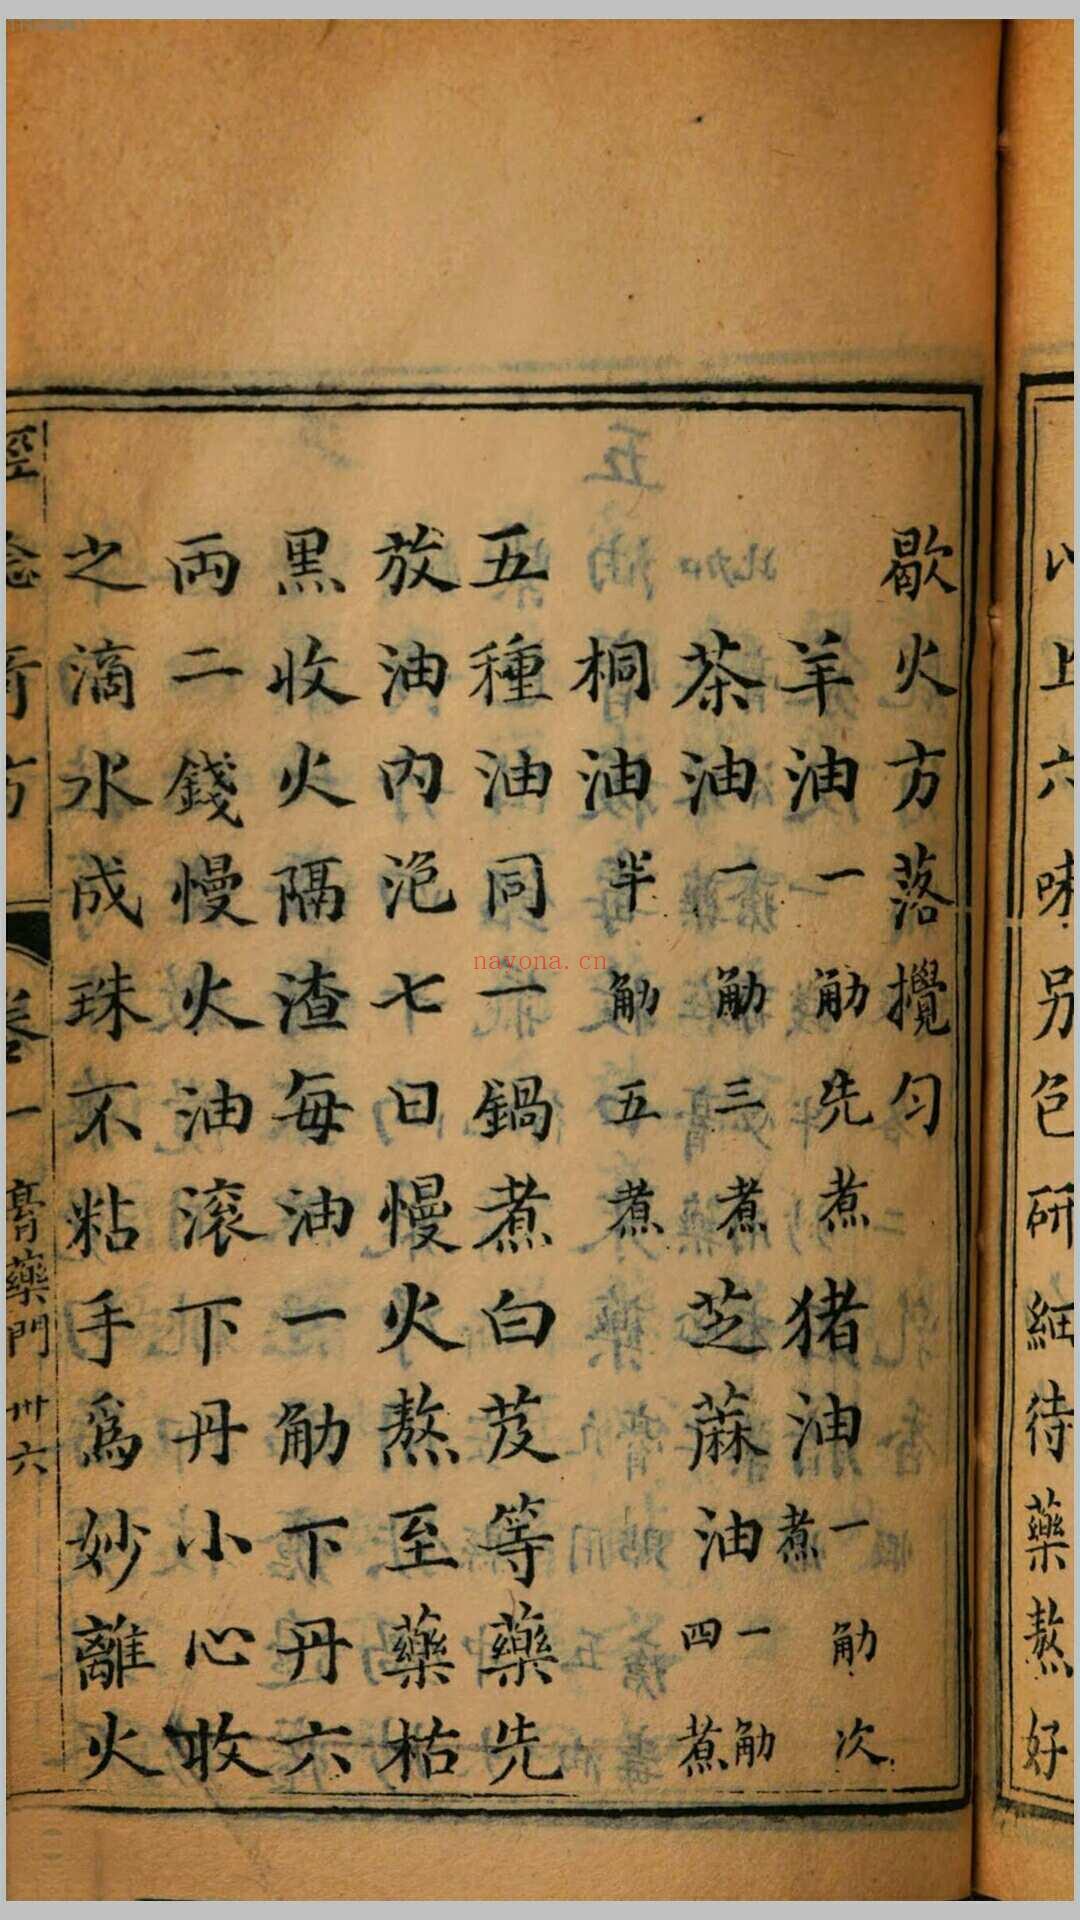 以上六味另色研細待藥熬好
歇火方落攪勻
羊油一觔先煮猪油一觔次煮
茶油一觔三煮芝蔴油一觔四煮
桐油半觔五煮
五種油同一鍋煮白芨等藥先
放油內浸七日慢火熬至藥枯
黑收火隔渣每油一觔下丹六
両二錢慢火油滾下丹小心收
之滴水成珠不粘手爲妙離火
經驗奇方
卷一 膏藥門 卅六
nayona.cn